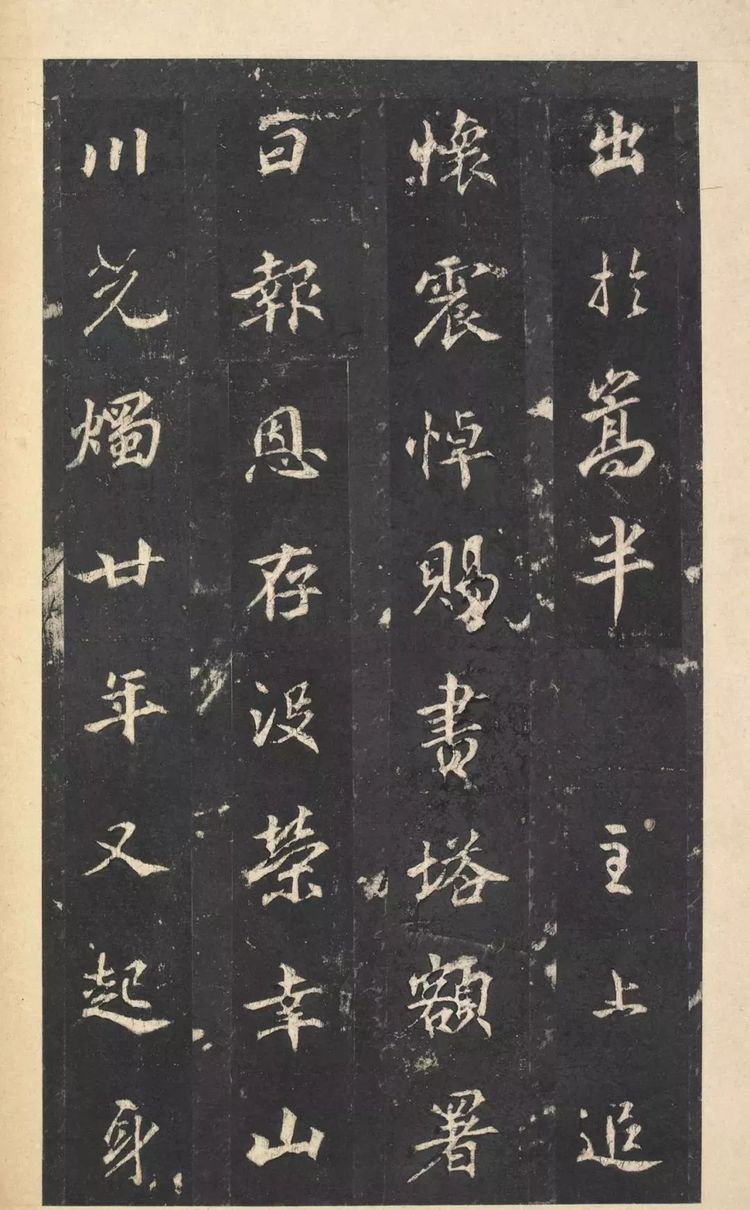 出於嵩半主上追
懷震悼賜書塔額署
曰報恩存没榮幸山
川光燭廿年又起身